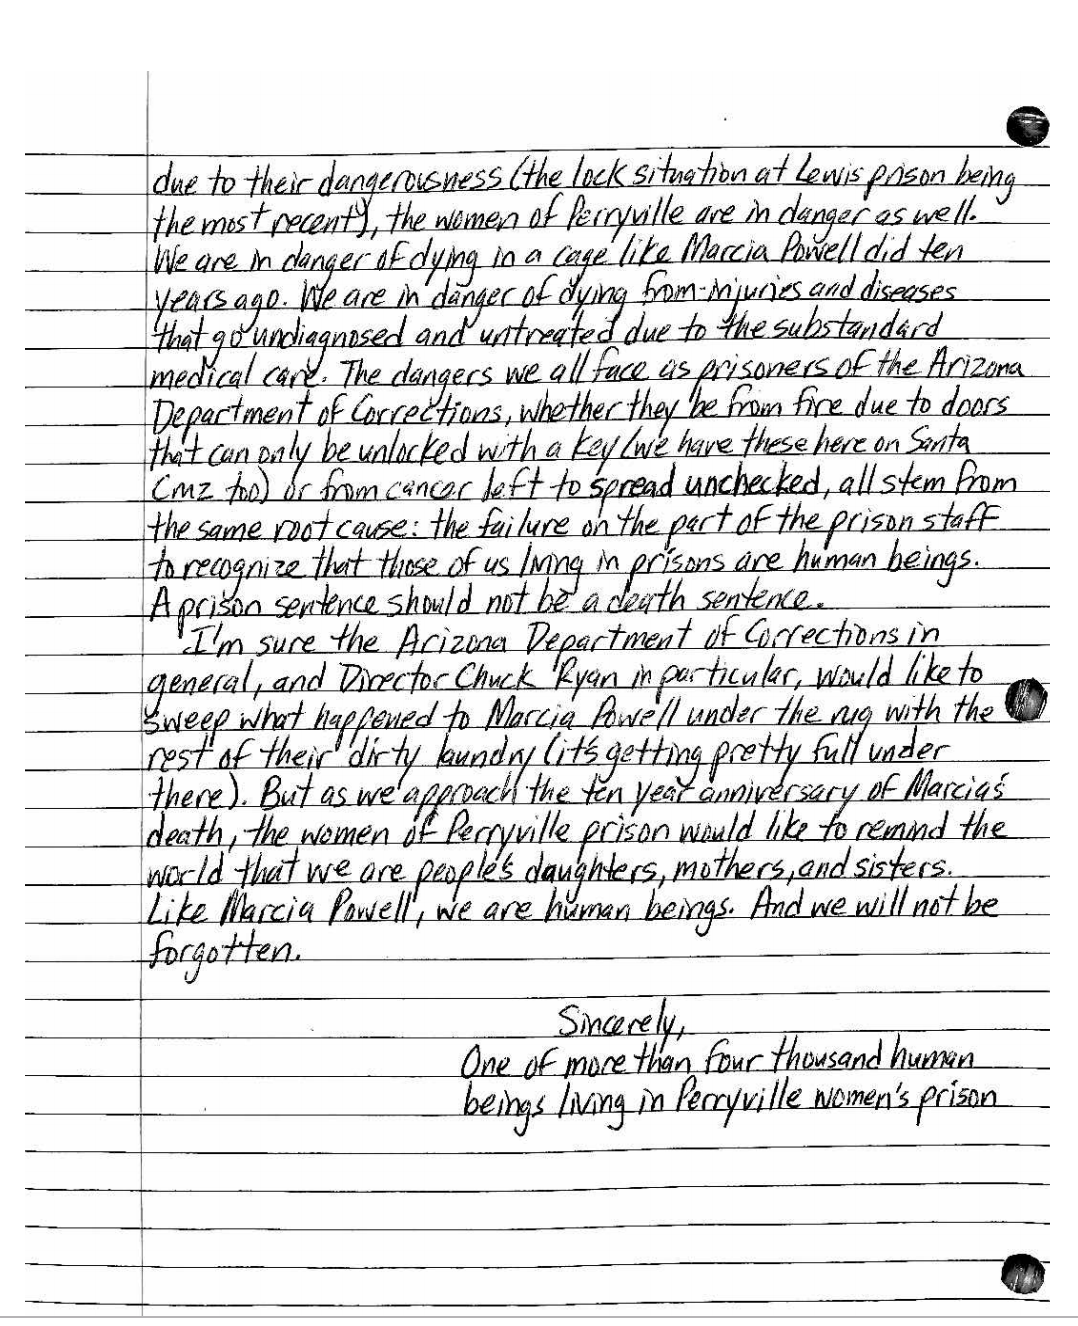 due to their dangerousness (the lock situation at Lewis prison being
the most recent), the women of Perryville are in danger as well.
We are in danger of dying in a cage like Marcia Powell did ten
years ago. We are in danger of dying from injuries and diseases
that go undiagnosed and untreated due to the substandard
medical care. The dangers we all face as prisoners of the Arizona
Department of Corrections, whether they be from fire due to doors
that can only be unlocked with a key (we have these here on Santa
Cruz too) or from cancer left to spread unchecked, all stem from
the same root cause: the failure on the part of the prison staff
to recognize that those of us living in prisons are human beings.
A prison sentence should not be a death sentence.
I'm sure the Arizona Department of Corrections in
general, and Director Chuck Ryan in particular, would like to
sweep what happened to Marcia Powell under the rug with the
rest of their dirty laundry (it's getting pretty full under
there). But as we approach the ten year anniversary of Marcia's
death, the women of Perryville prison would like to remind the
world that we are people's daughters, mothers, and sisters.
Like Marcia Powell, we are human beings. And we will not be
forgotten.
Sincerely,
One of more than four thousand human
beings living in Perryville women's prison